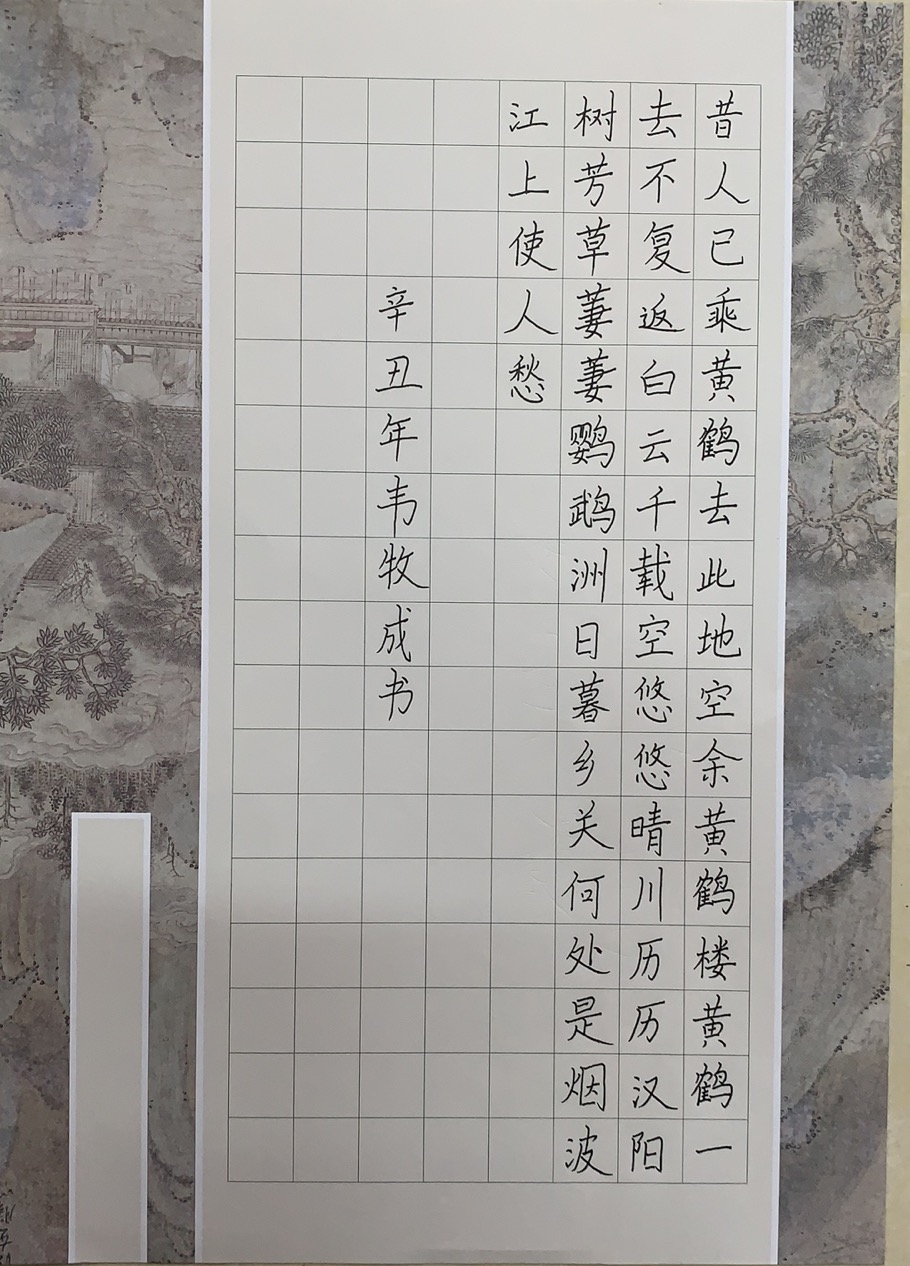 昔人已乘黄鹤去此地空余黄鹤楼黄鹤一
去不复返白云千载空悠悠晴川历历汉阳
树芳草萋萋鹦鹉洲日暮乡关何处是烟波
江上使人愁
辛丑年韦牧成书